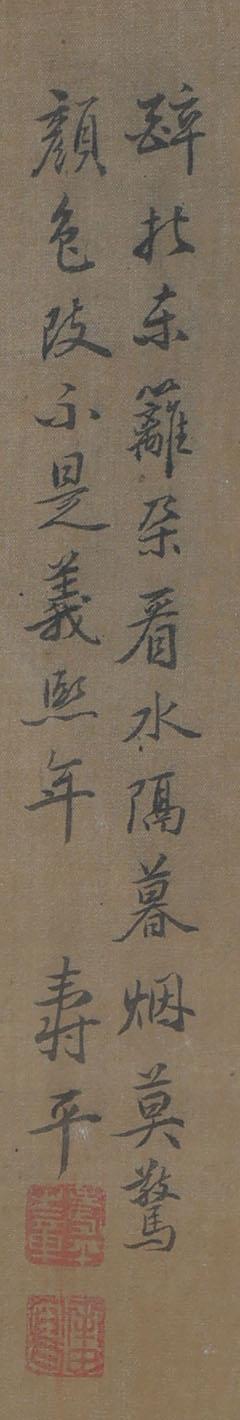 醉把東籬朵看水隔暮烟莫驚
顏色改不是義熙年 壽平